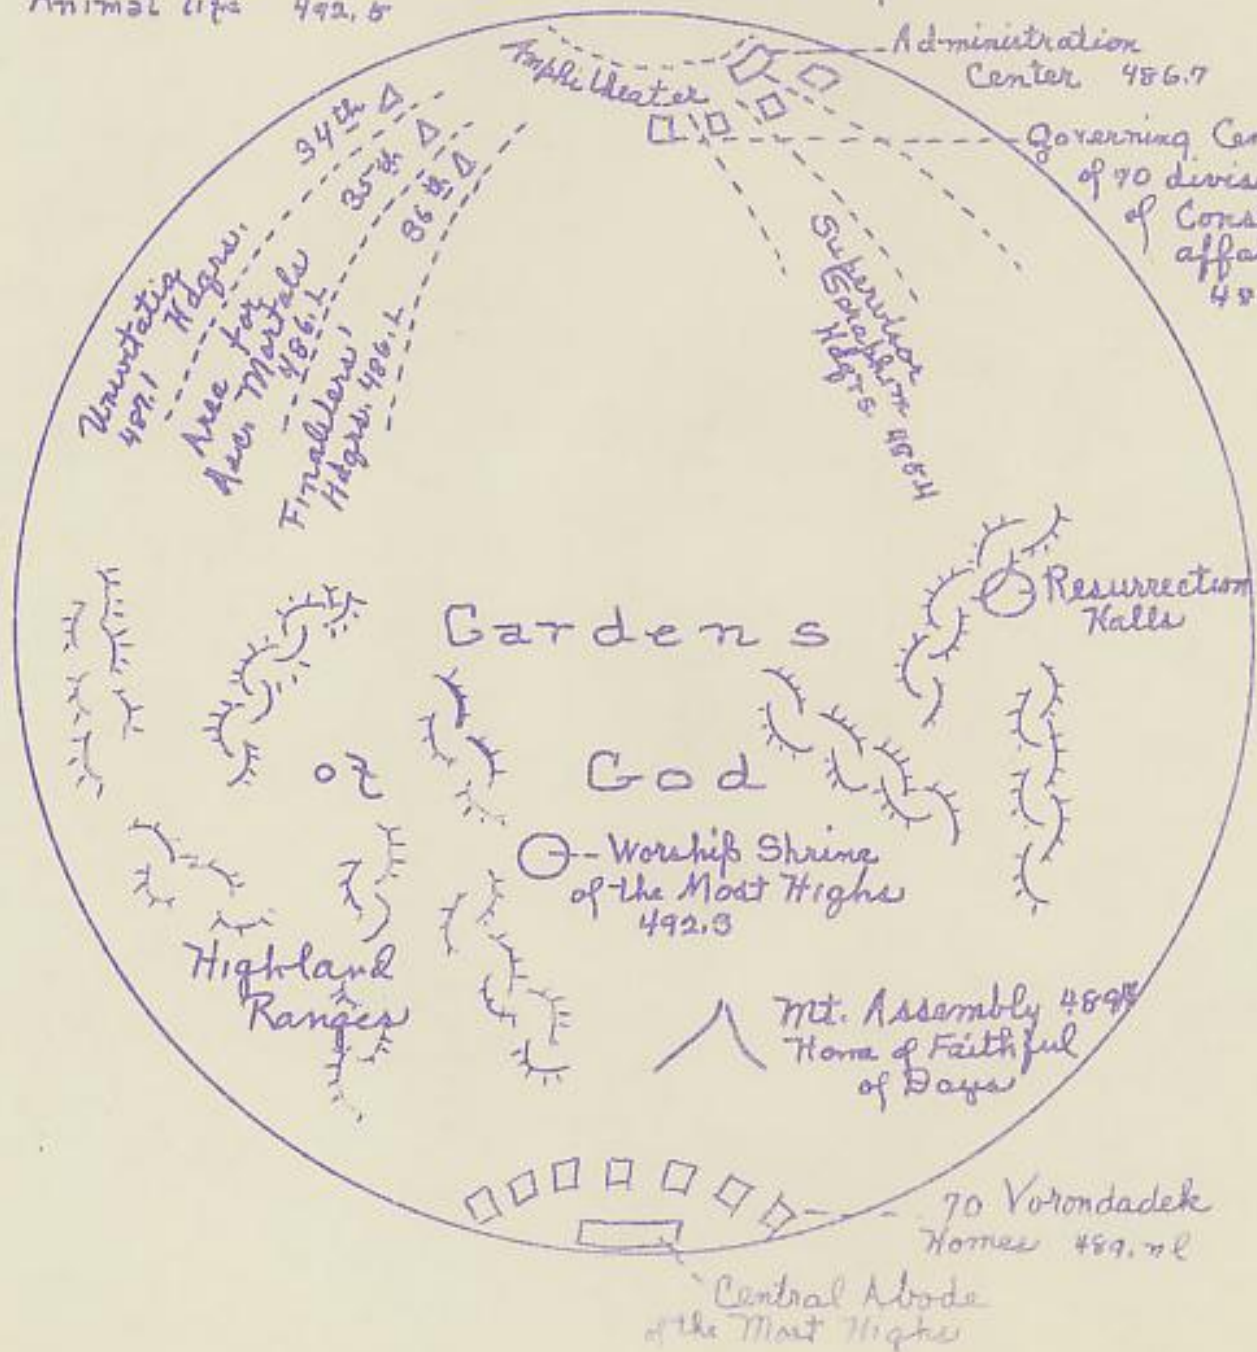 Animal life 492.5
Administration
Center 486.7
Amphitheater
Governing Cen
of 70 divis
of Cons
affa
48
34th
35th
36th
Univitatia
Hdqrs.
487.1
Area for
Asc. Mortals
486.L
Finaliters'
Hdqrs. 486.L
Supervisor
Seraphim
Hdqrs. 485.4
Resurrection
Halls
Gardens
of God
Worship Shrine
of the Most Highs
492.3
Highland
Ranges
Mt. Assembly
Home of Faithful
of Days
70 Vorondadek
Homes 489.nl
Central Abode
of the Most Highs